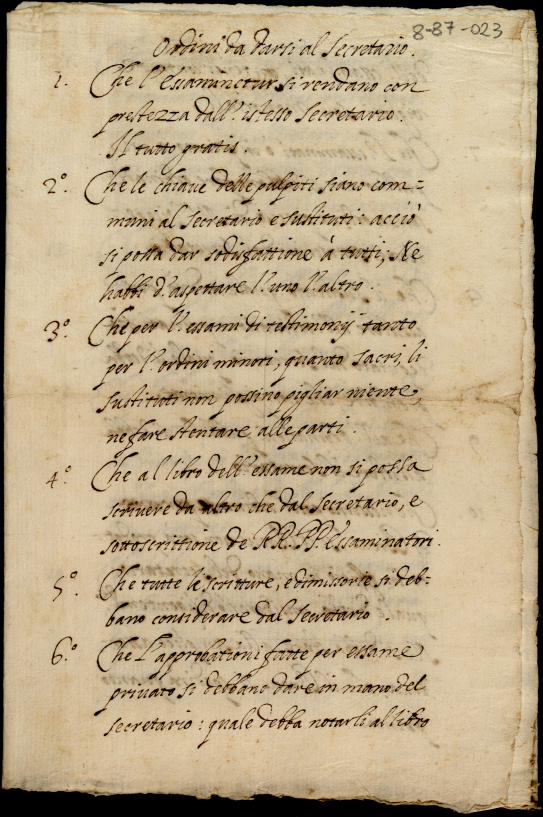 8-87-023
Ordini da darsi al Secretario.
1. Che l'essaminetur si rendano con
prestezza dall'istesso Secretario.
Il tutto gratis.
2.º Che le chiave delle pulpiti siano com=
muni al Secretario e sustituti: acciò
si possa dar sodisfattione à tutti; Ne
habbi d'aspettare l'uno l'altro.
3.º Che per l'essami di testimonij tanto
per l'ordini minori, quanto sacri, li
sustituti non possino pigliar niente,
ne fare stentare alle parti.
4.º Che al libro dell'essame non si possa
scrivere da altro che dal Secretario, e
sottoscrittione de RR. PP. essaminatori.
5.º Che tutte le scritture, e dimissorie si deb-
bano considerare dal Secretario.
6.º Che l'approbationi fatte per essame
privato si debbano dare in mano del
secretario: quale debba notarli al libro